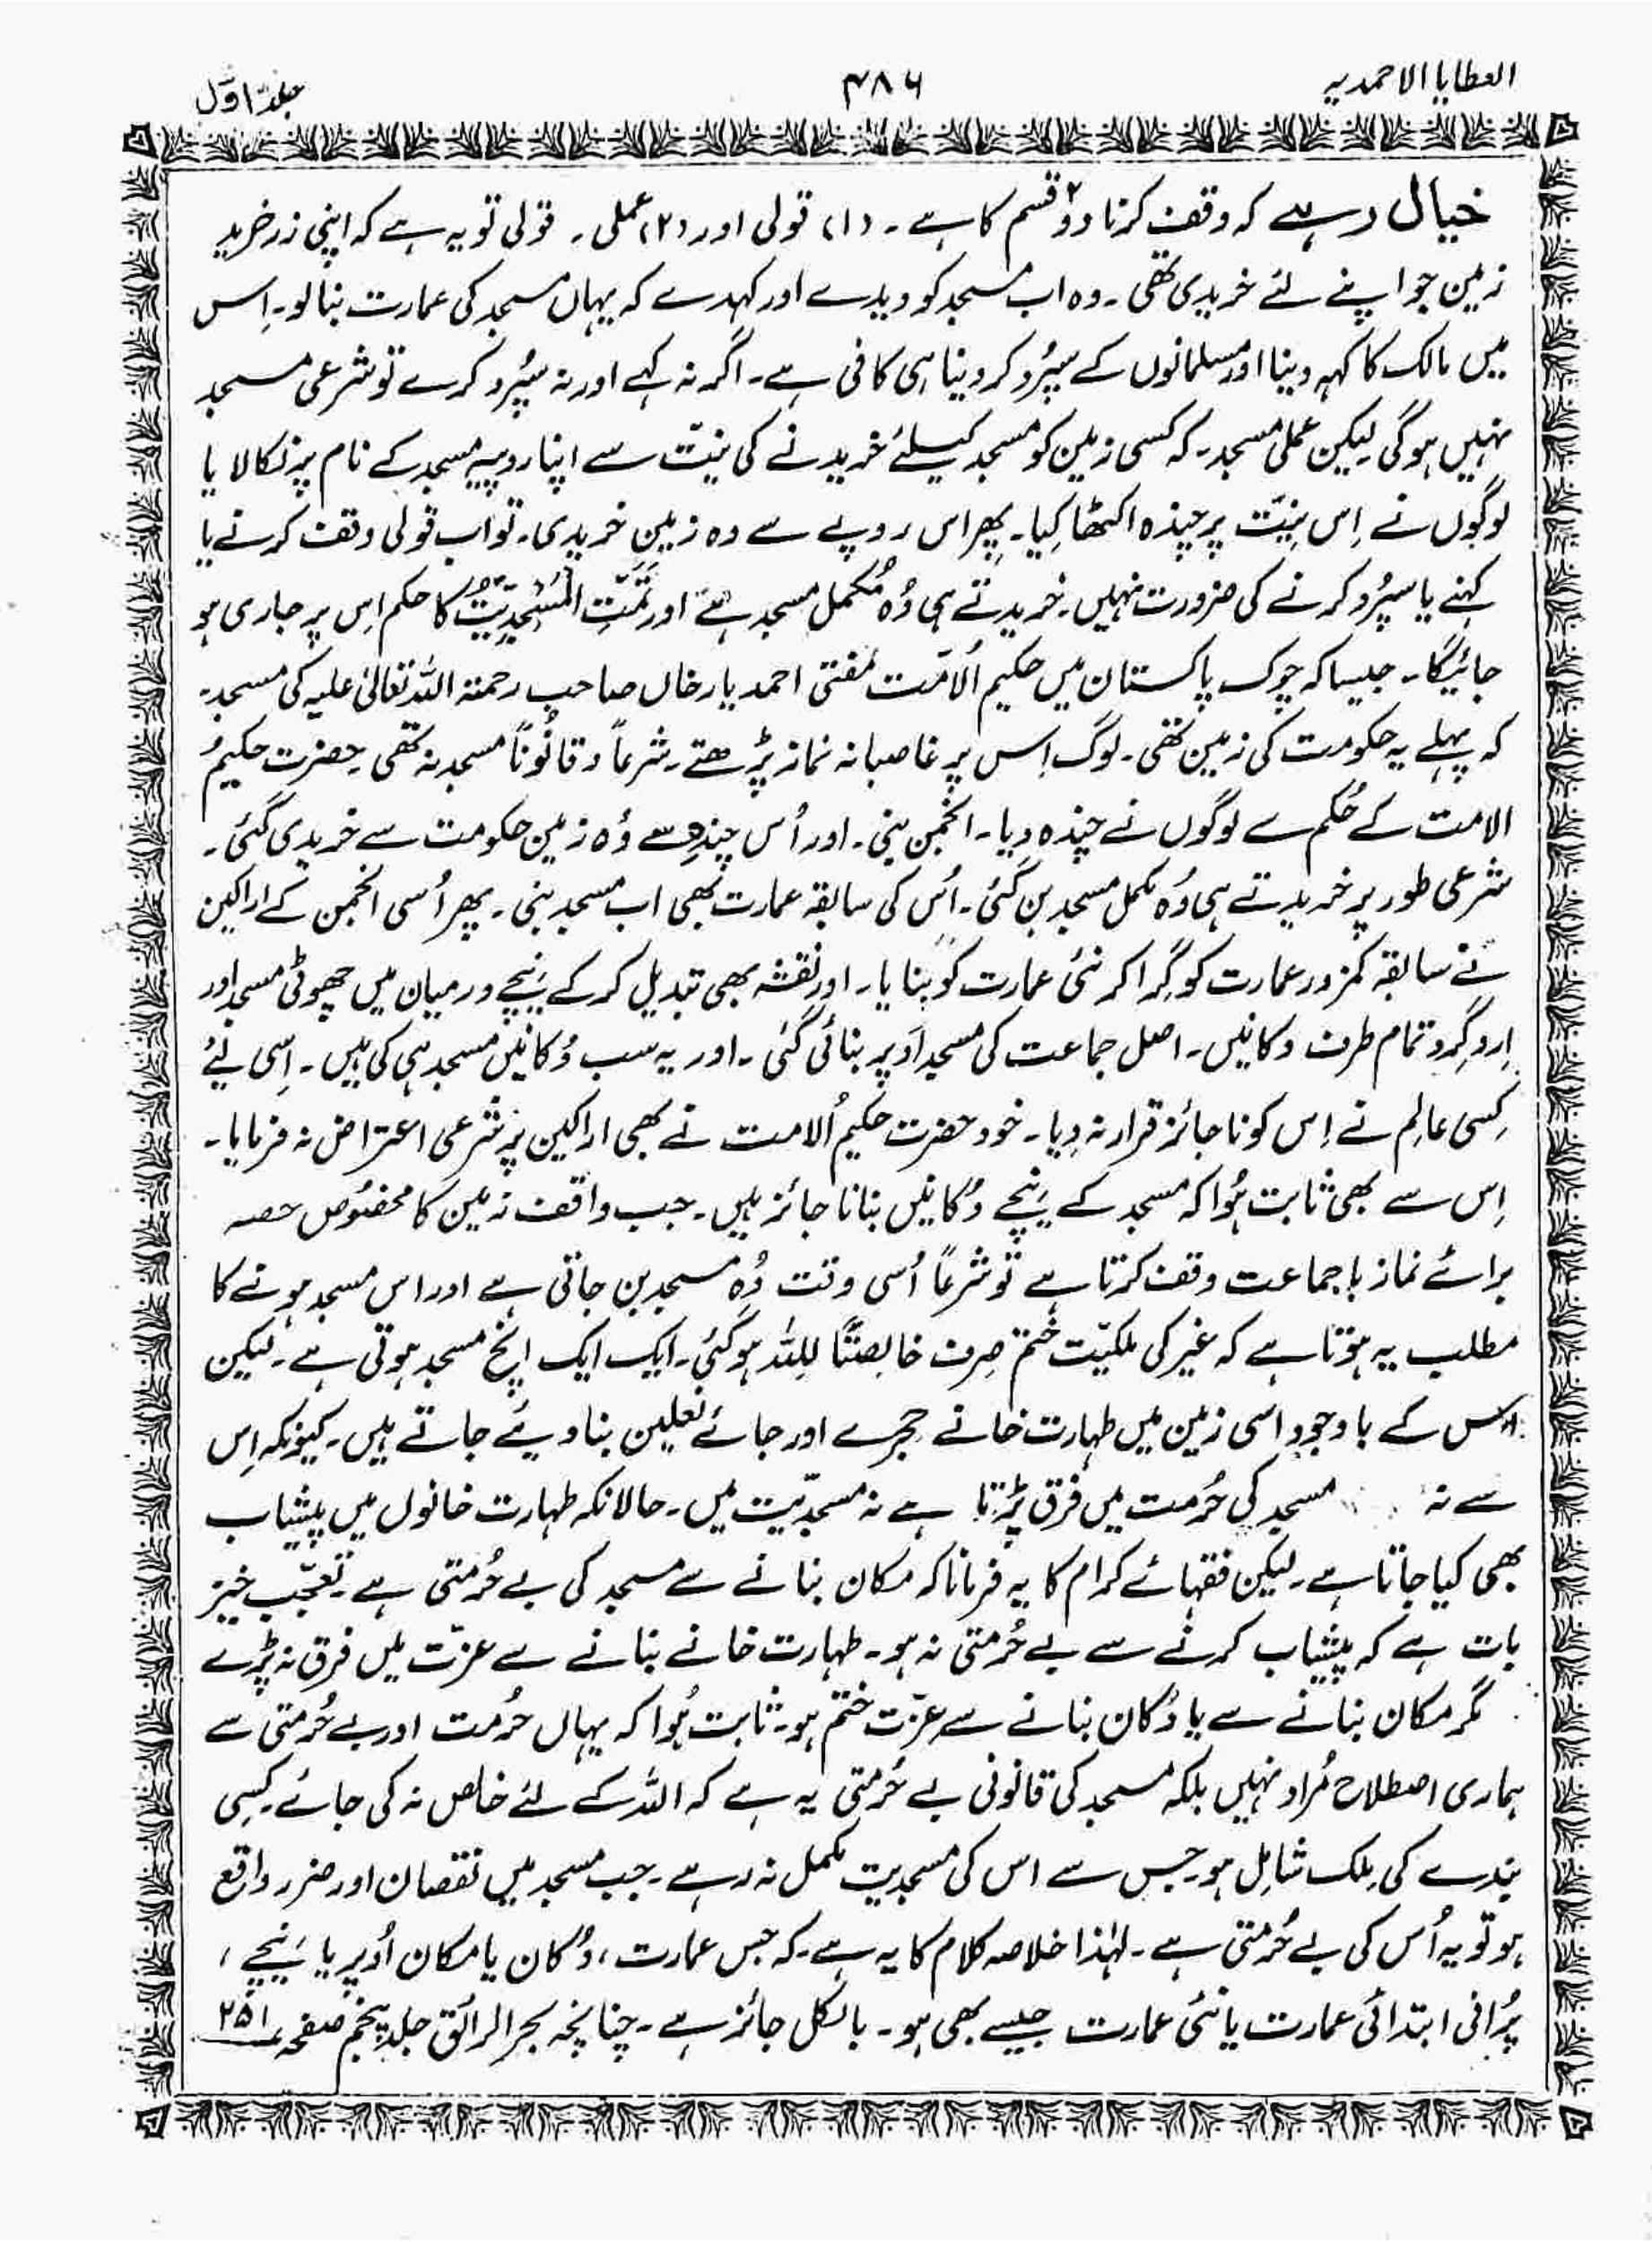 العطایا الاحمدیہ
۴۸۶
جلد اوّل
خیال رہے کہ وقف کرنا دو۲ قسم کا ہے ۔ (۱) قولی اور (۲) عملی ۔ قولی تو یہ ہے کہ اپنی زر خرید
زمین جو اپنے لئے خریدی تھی ۔ وہ اب مسجد کو دیدے اور کہدے کہ یہاں مسجد کی عمارت بنا لو ۔ اِس
میں مالک کا کہہ دینا اور مسلمانوں کے سپُرد کر دینا ہی کافی ہے ۔ اگر نہ کہے اور نہ سپُرد کرے تو شرعی مسجد
نہیں ہو گی لیکن عملی مسجد ۔ کہ کسی زمین کو مسجد کیلئے خریدنے کی نیّت سے اپنا روپیہ مسجد کے نام پر نکالا یا
لوگوں نے اِس نیّت پر چندہ اکٹھا کِیا ۔ پھر اس روپے سے وہ زمین خریدی ۔ تو اب قولی وقف کرنے یا
کہنے یا سپُرد کرنے کی ضرورت نہیں ۔ خریدتے ہی وُہ مُکمل مسجد ہے اور تَمَّتِ الْمَسْجِدِیَّتُ کا حکم اِس پر جاری ہو
جائیگا ۔ جیسا کہ چوک پاکستان میں حکیم اُلامّت مُفتی احمد یار خاں صاحب رحمۃ اللہ تعالیٰ علیہ کی مسجد ۔
کہ پہلے یہ حکومت کی زمین تھی ۔ لوگ اِس پر غاصبانہ نماز پڑھتے ۔ شرعاً و قانُوناً مسجد نہ تھی ۔ حضرت حکیمُ
الامت کے حُکم سے لوگوں نے چندہ دِیا ۔ انجمن بنی ۔ اور اُس چندہ سے وُہ زمین حکومت سے خریدی گئی ۔
شرعی طور پر خریدتے ہی وُہ مکمل مسجد بن گئی ۔ اُس کی سابقہ عمارت بھی اب مسجد بنی ۔ پھر اُسی انجمن کے اراکین
نے سابقہ کمزور عمارت کو گِرا کر نئی عمارت کو بنایا ۔ اور نقشہ بھی تبدیل کر کے نیچے درمیان میں چھوٹی مسجد اور
اِردگِرد تمام طرف دکانیں ۔ اصل جماعت کی مسجد اُوپر بنائی گئی ۔ اور یہ سب دُکانیں مسجد ہی کی ہیں ۔ اِسی لئے
کِسی عالِم نے اِس کو ناجائز قرار نہ دِیا ۔ خود حضرت حکیمُ اُلامت نے بھی اراکین پر شرعی اعتراض نہ فرمایا ۔
اِس سے بھی ثابت ہُوا کہ مسجد کے نیچے دُکانیں بنانا جائز ہیں ۔ جب واقف زمین کا مخصُوص حصہ
برائے نماز باجماعت وقف کرتا ہے تو شرعاً اُسی وقت وُہ مسجد بن جاتی ہے اور اس مسجد ہونے کا
مطلب یہ ہوتا ہے کہ غیر کی ملکیّت ختم صِرف خالِصتًا للہ ہو گئی ۔ ایک ایک اِنچ مسجد ہوتی ہے ۔ لیکن
اس کے باوجود اسی زمین میں طہارت خانے حجرے اور جائے نعلین بنا دیئے جاتے ہیں ۔ کیونکہ اِس
سے نہ مسجد کی حُرمت میں فرق پڑتا ہے نہ مسجدیّت میں ۔ حالانکہ طہارت خانوں میں پیشاب
بھی کیا جاتا ہے ۔ لیکن فقہائے کرام کا یہ فرمانا کہ مکان بنانے سے مسجد کی بے حُرمتی ہے ۔ تعجّب خیز
بات ہے کہ پیشاب کرنے سے بے حُرمتی نہ ہو ۔ طہارت خانے بنانے سے عزّت میں فرق نہ پڑے
مگر مکان بنانے سے یا دُکان بنانے سے عزّت ختم ہو ۔ ثابت ہُوا کہ یہاں حُرمت اور بے حُرمتی سے
ہماری اصطلاح مُراد نہیں بلکہ مسجد کی قانونی بے حُرمتی یہ ہے کہ اللہ کے لئے خاص نہ کی جائے ۔ کِسی
بندے کی مِلک شامِل ہو ۔ جس سے اس کی مسجدیت مکمل نہ رہے ۔ جب مسجد میں نقصان اور ضرر واقع
ہو تو یہ اُس کی بے حُرمتی ہے ۔ لہٰذا خلاصہ کلام کا یہ ہے ۔ کہ جس عمارت ، دُکان یا مکان اُوپر یا نیچے ،
پُرانی ابتدائی عمارت یا نئی عمارت جیسے بھی ہو ۔ بالکل جائز ہے ۔ چنانچہ بحر الرائق جلد پنجم صفحہ ۲۵۱